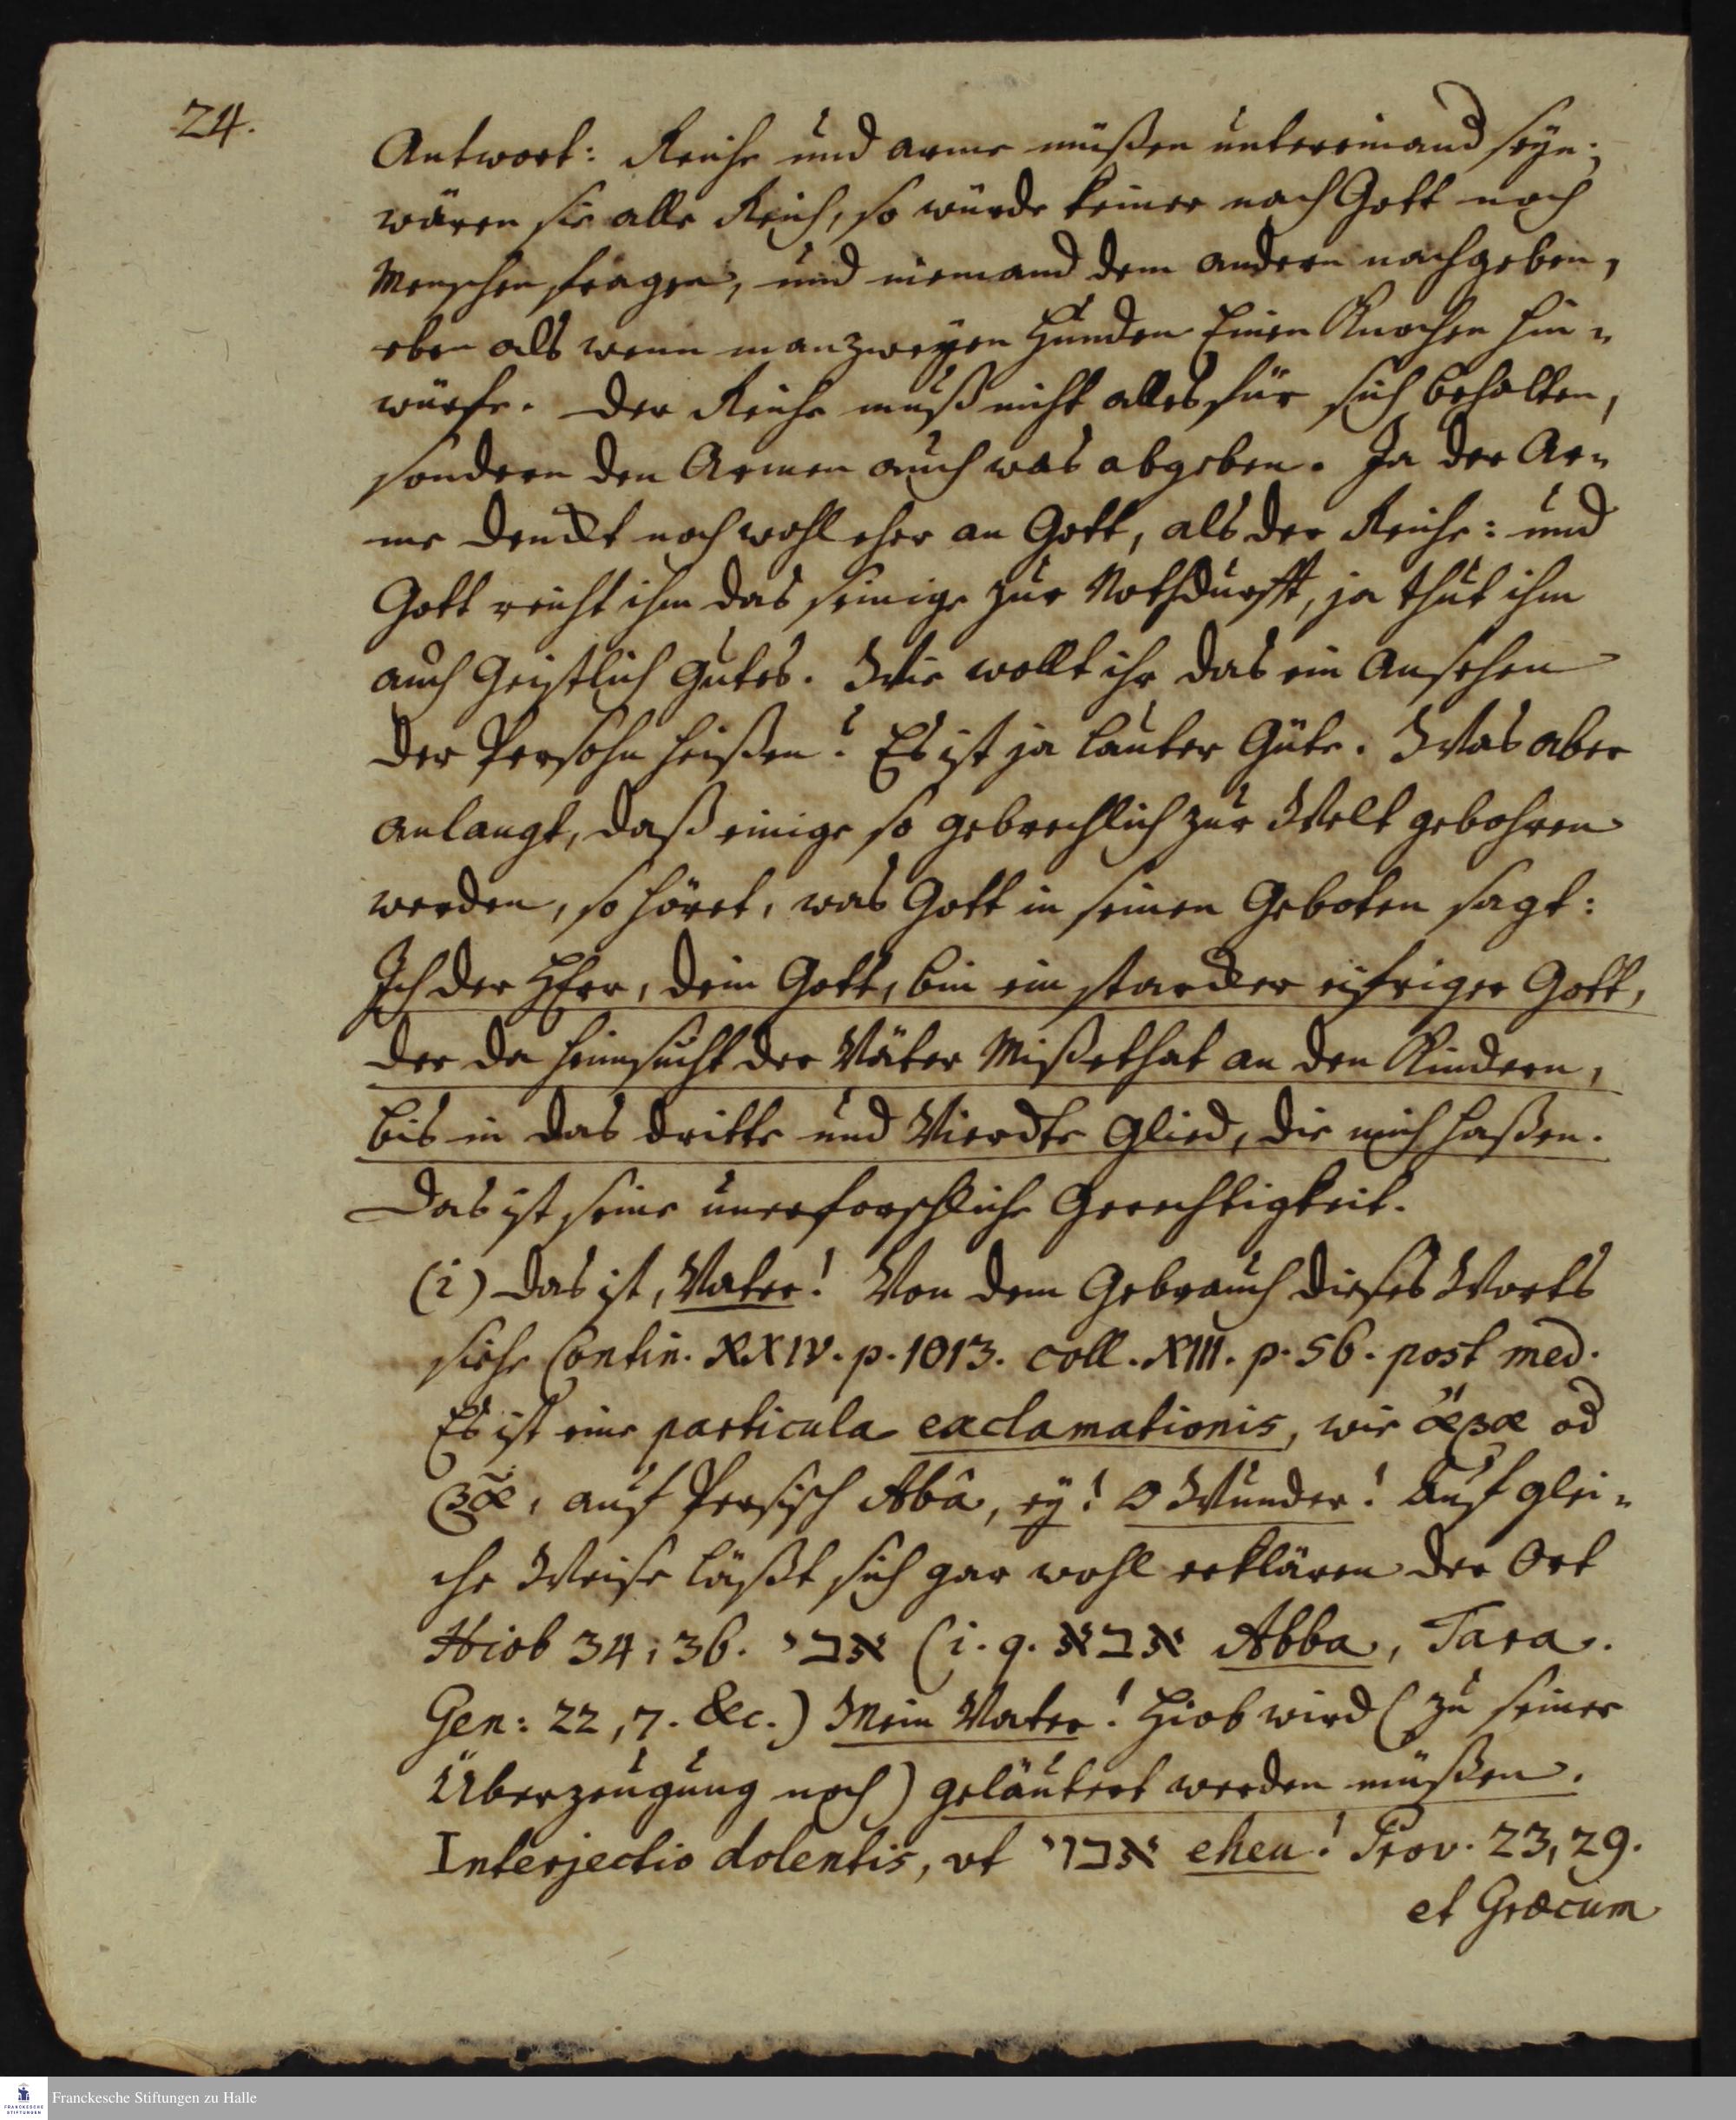 24.
Antwort: Reiche und arme müßen untereinand seyn;
wären sie alle Reich, so würde keiner nach Gott noch
Menschen fragen, und niemand dem andern nachgeben,
eben als wenn man zweyen Hunden Einen Knochen hin-
würfe. Der Reiche muß nicht alles für sich behalten,
sondern den Armen auch was abgeben. Ja der Ar-
me denckt noch wohl eher an Gott, als der Reiche: und
Gott reicht ihm das seinige zur Nothdurfft, ja thut ihm
auch Geistlich Gutes. Wie wollt ihr das ein Ansehen
der Persohn heißen? Es ist ja lauter Güte. Was aber
anlangt, daß einige so gebrechlich zur Welt gebohren
werden, so höret, was Gott in seinen Geboten sagt:
Ich der HErr, dein Gott, bin ein starcker eifriger Gott,
der da heimsucht der Väter Mißethat an den Kindern,
bis in das dritte und Vierdte Glied, die mich haßen.
Das ist seine unerforschliche Gerechtigkeit.
(i) Das ist, Vater! Von dem Gebrauch dieses Worts
siehe Contin. XXIV. p. 1013. coll. XIII. p. 56. post med.
Es ist eine particula exclamationis, wie ἄβα od
βᾶ, auf Persisch Abâ, ey! O Wunder! Auf glei-
che Weise läßt sich gar wohl erklären der Ort
Hiob 34, 36. אבי (i. q. אבא Abba, Tara.
Gen: 22, 7. &c.) Mein Vater! Hiob wird (zu seiner
Überzeugung noch) geläutert werden müßen.
Interjectio dolentis, vt אבוי eheu! Prov. 23, 29.
et Græcum
Franckesche Stiftungen zu Halle